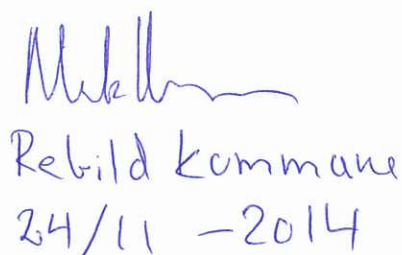 Rebild Kommune
24/11 - 2014